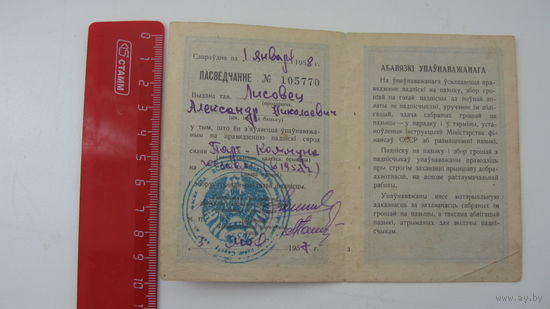 СТАММ
Сапраўдна да 1 января 1958 г.
ПАСВЕДЧАННЕ № 105770
Выдана тав. Лисовец
Александр Николаевич
у тым, што ён з'яўляецца ўпаўнаважа-
ным па правядзенню падпіскі сярод
Парт-Коммуна
1957 г.
3
АБАВЯЗКІ УПАЎНАВАЖАНАГА
На ўпаўнаважанага ўскладаецца пра-
вядзенне падпіскі на пазыку, збор гро-
шай па гэтай падпісцы да поўнай апла-
ты яе падпісчыкамі, уручэнне ім аблі-
гацый, здача сабраных ім грошай па
пазыцы — у парадку і ў тэрміны, уста-
ноўленыя інструкцыяй Міністэрства фі-
нансаў СССР аб размяшчэнні пазыкі.
Падпіску на пазыку і збор грошай з
падпісчыкаў упаўнаважаны праводзіць
пры строгім захаванні прынцыпу добра-
ахвотнасці, на аснове растлумачальнай
работы.
Упаўнаважаны нясе матэрыяльную
адказнасць за захаванасць сабраных ім
грошай па пазыцы, а таксама аблігацый
пазыкі, атрыманых для выдачы падпіс-
чыкам.
www.ay.by